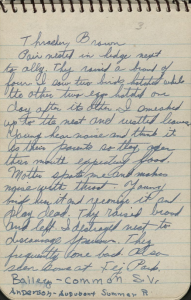 3
Thrasher, Brown
Pair nested in hedge next
to alley. They raised a brood of
four. I saw two birds hatched while
the other two eggs hatched one
day after its other. I sneaked
up to the nest and rustled leaves
Young hear noise and think it
as their parents so they open
their mouth expecting food.
Mother spots me and makes
noise with throat. Young
birds hear it and recognize it and
play dead. They raised brood
and left. I destroyed nest to
discourage Sparrow. They
frequently come back. Also
seen some at Park.
Common S.V.
Audubon Summer R